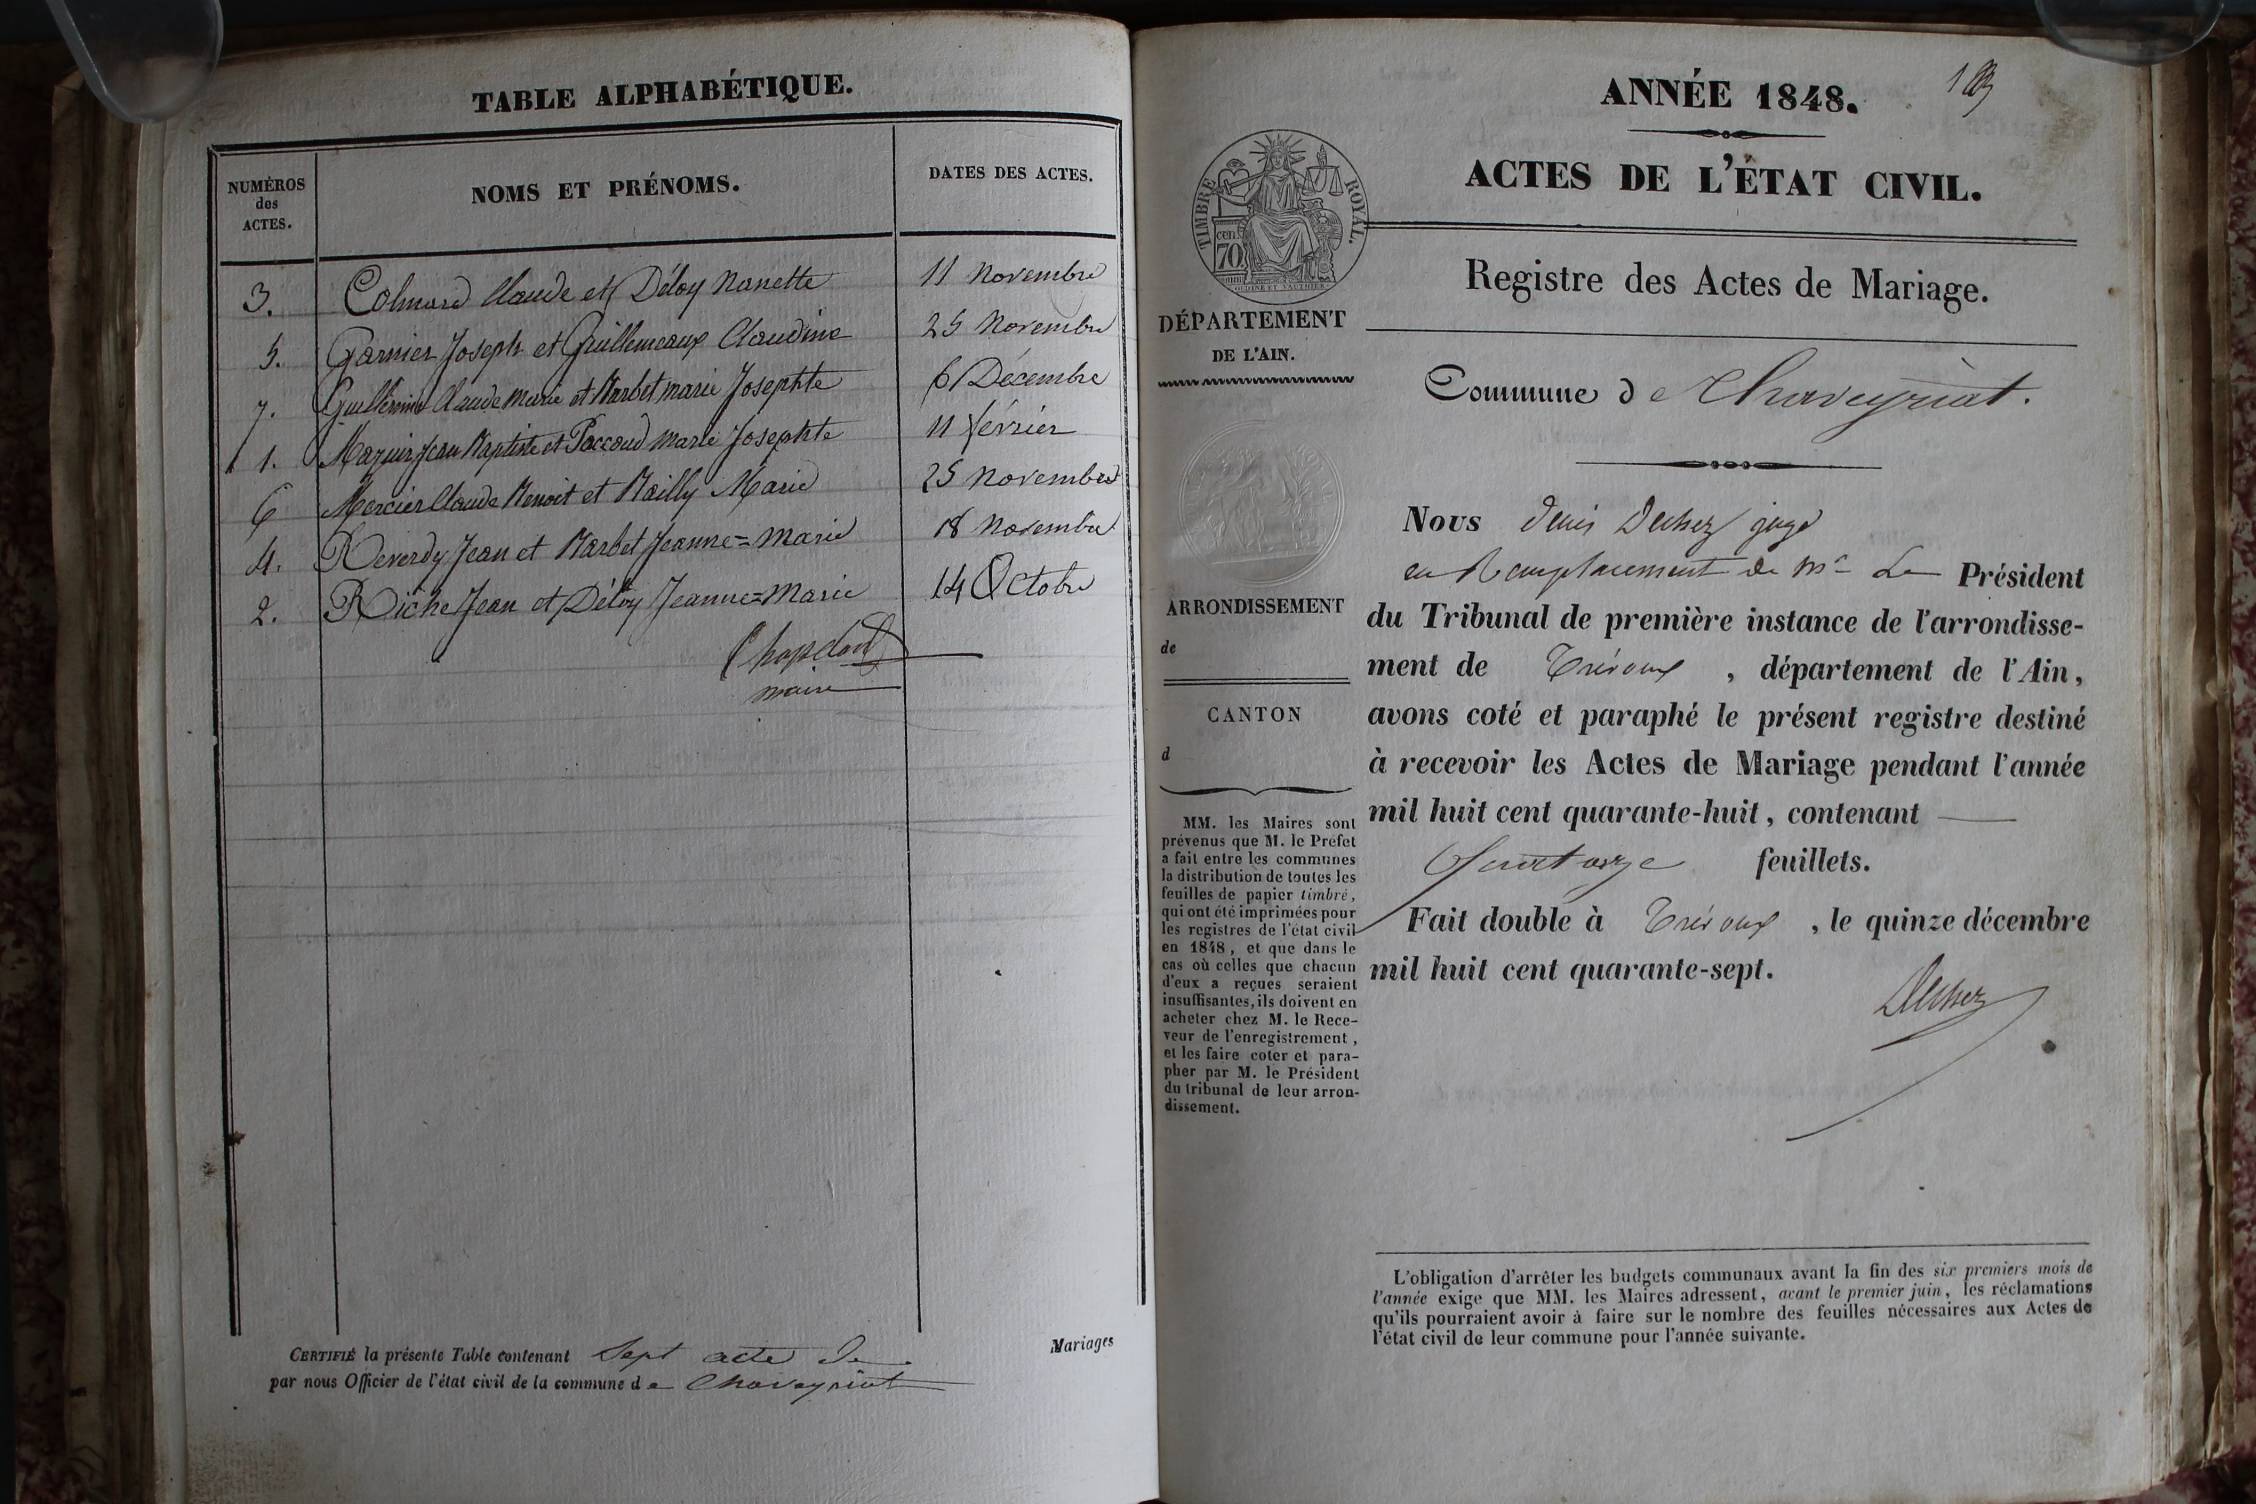 TABLE ALPHABÉTIQUE.
NUMÉROS
des
ACTES.
NOMS ET PRÉNOMS.
DATES DES ACTES.
3. Colmard Claude et Déloy Nanette 11 Novembre
5. Garnier Joseph et Guillemeaux Claudine 25 Novembre
7. Guillermin Claude Marie et Barbet marie Josephte 6 Décembre
1. Mazuir Jean Baptiste et Paccoud Marie Josephte 11 février
6 Mercier Claude Benoit et Bailly Marie 25 Novembre
4. Reverdy Jean et Barbet Jeanne=Marie 18 Novembre
2. Riche Jean et Déloy Jeanne=Marie 14 Octobre
maire
Mariages
CERTIFIÉ la présente Table contenant Sept acte de
par nous Officier de l'état civil de la commune de Chaveyriat
ANNÉE 1848.
ACTES DE L'ÉTAT CIVIL.
TIMBRE ROYAL.
cen.
70
Registre des Actes de Mariage.
DÉPARTEMENT
DE L'AIN.
Commune de Chaveyriat.
ARRONDISSEMENT
de
CANTON
d
MM. les Maires sont
prévenus que M. le Préfet
a fait entre les communes
la distribution de toutes les
feuilles de papier timbré,
qui ont été imprimées pour
les registres de l'état civil
en 1848, et que dans le
cas où celles que chacun
d'eux a reçues seraient
insuffisantes, ils doivent en
acheter chez M. le Rece-
veur de l'enregistrement,
et les faire coter et para-
pher par M. le Président
du tribunal de leur arron-
dissement.
Nous Denis juge
en Remplacement de Mr Le Président
du Tribunal de première instance de l'arrondisse-
ment de Trévoux, département de l'Ain,
avons coté et paraphé le présent registre destiné
à recevoir les Actes de Mariage pendant l'année
mil huit cent quarante-huit, contenant
feuillets.
Fait double à Trévoux, le quinze décembre
mil huit cent quarante-sept.
L'obligation d'arrêter les budgets communaux avant la fin des six premiers mois de
l'année exige que MM. les Maires adressent, avant le premier juin, les réclamations
qu'ils pourraient avoir à faire sur le nombre des feuilles nécessaires aux Actes de
l'état civil de leur commune pour l'année suivante.